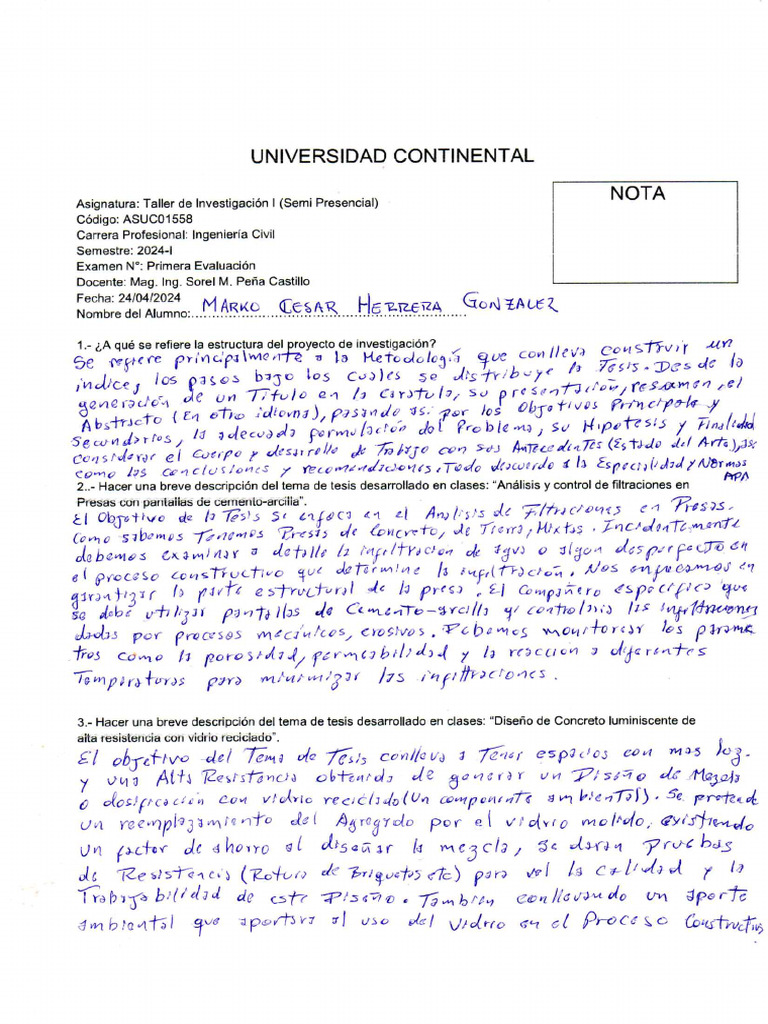 UNIVERSIDAD CONTINENTAL
NOTA
Asignatura: Taller de Investigación I (Semi Presencial)
Código: ASUC01558
Carrera Profesional: Ingeniería Civil
Semestre: 2024-I
Examen N°: Primera Evaluación
Docente: Mag. Ing. Sorel M. Peña Castillo
Fecha: 24/04/2024
Nombre del Alumno: MARKO CESAR HERRERA GONZALEZ
1.- ¿A qué se refiere la estructura del proyecto de investigación?
Se refiere principalmente a la Metodología que conlleva construir un
indice, los pasos bajo los cuales se distribuye la Tesis. Desde la
generación de un Título en la Caratula, su presentación, resumen, el
Abstracto (En otro idioma), pasando asi por los Objetivos Principale y
Secundarios, la adecuada formulación del Problema, su Hipotesis y Finalidad
considerar el Cuerpo y desarrollo de Trabajo con sus Antecedentes (Estado del Arte), asi
como las conclusiones y recomendaciones. Todo deacuerdo a la Especialidad y Normas
APA
2..- Hacer una breve descripción del tema de tesis desarrollado en clases: “Análisis y control de filtraciones en
Presas con pantallas de cemento-arcilla”.
El Objetivo de la Tesis se enfoca en el Analisis de Filtraciones en Presas.
como sabemos Tenemos Presas de Concreto, de Tierra, Mixtas. Incidentemente
debemos examinar a detalle la infiltracion de agua o algun desperfecto en
el proceso constructivo que determine la infiltración. Nos enfocamos en
garantizar la parte estructural de la presa. El compañero especifica que
se debe utilizar pantallas de Cemento-arcilla y controlaria las infiltraciones
dadas por procesos mecánicos, erosivos. Debemos monitorear los parame
tros como la porosidad, permeabilidad y la reaccion a diferentes
Temperaturas para minimizar las infiltraciones.
3.- Hacer una breve descripción del tema de tesis desarrollado en clases: “Diseño de Concreto luminiscente de
alta resistencia con vidrio reciclado”.
El objetivo del Tema de Tesis conlleva a Tener espacios con mas luz.
y una Alta Resistencia obtenida de generar un Diseño de Mezcla
o dosificación con vidrio reciclado (Un componente ambiental). Se pretende
un reemplazamiento del Agregado por el vidrio molido, existiendo
un factor de ahorro al diseñar la mezcla, se daran Pruebas
de Resistencia (Rotura de Briquetas etc) para vel la Calidad y la
Trabajabilidad de este Diseño. Tambien conllevando un aporte
ambiental que aportara al uso del Vidrio en el Proceso Constructivo